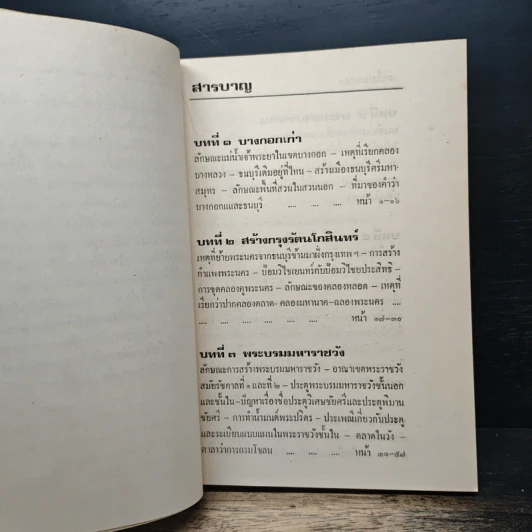 สารบาญ
บทที่ ๑ บางกอกเก่า
ลักษณะแม่น้ำเจ้าพระยาในเขตบางกอก – เหตุที่เรียกคลอง
บางหลวง – ธนบุรีเดิมอยู่ที่ไหน – สร้างเมืองธนบุรีศรีมหา-
สมุทร – ลักษณะพื้นที่สวนในสวนนอก – ที่มาของคำว่า
บางกอกและธนบุรี .... .... .... หน้า ๑–๑๖
บทที่ ๒ สร้างกรุงรัตนโกสินทร์
เหตุที่ย้ายพระนครจากธนบุรีข้ามมาฝั่งกรุงเทพ ฯ – การสร้าง
กำแพงพระนคร – ป้อมวิไชเยนทร์กับป้อมวิไชยประสิทธิ์ –
การขุดคลองคูพระนคร – ลักษณะของคลองหลอด – เหตุที่
เรียกว่าปากคลองตลาด– คลองมหานาค–ฉลองพระนคร ....
.... .... .... .... .... หน้า ๑๗–๓๐
บทที่ ๓ พระบรมมหาราชวัง
ลักษณะการสร้างพระบรมมหาราชวัง – อาณาเขตพระราชวัง
สมัยรัชกาลที่ ๑ และที่ ๒ – ประตูพระบรมมหาราชวังชั้นนอก
และชั้นใน–ปัญหาเรื่องชื่อประตูวิเศษชัยศรีและประตูพิมาน
ชัยศรี – การทำน้ำมนต์พระปริตร – ประเพณีเกี่ยวกับประตู
และระเบียบแบบแผนในพระราชวังชั้นใน – ตลาดในวัง –
ศาลาว่าการกรมโขลน .... .... .... หน้า ๓๑–๕๗